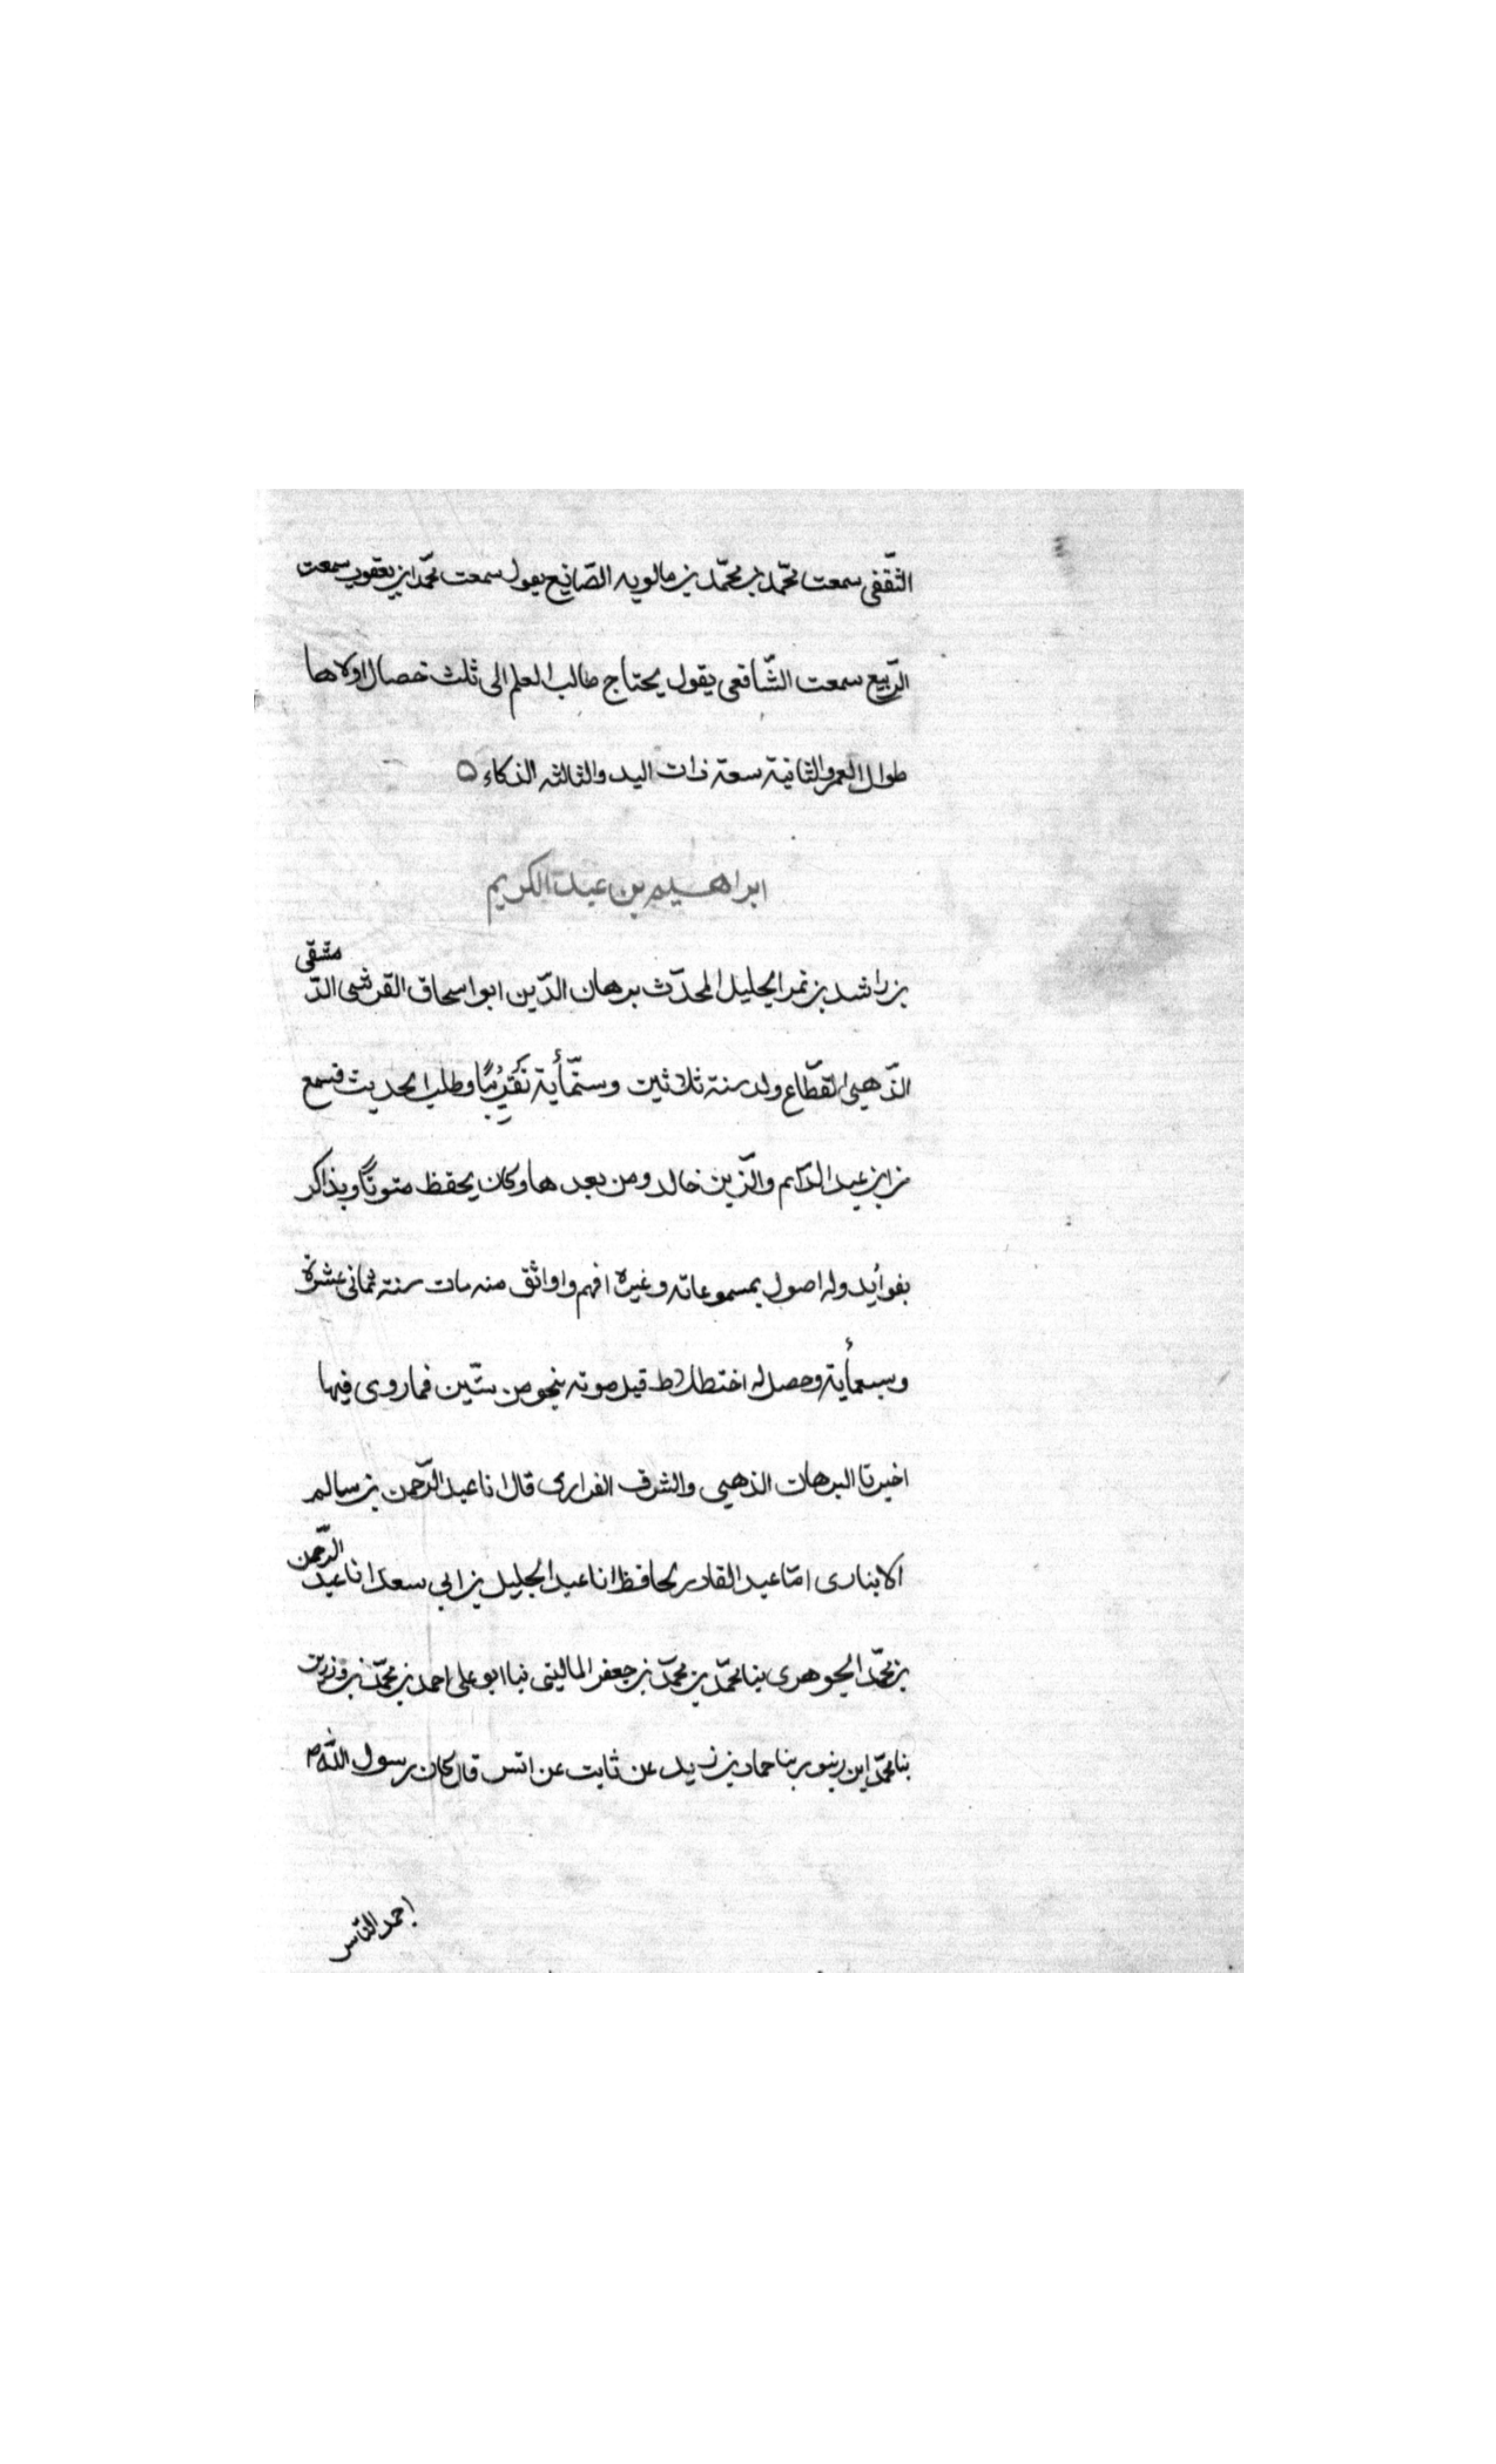 الثّقفى سمعت محمّد بن محمّد بن مالويه الصّانع يقول سمعت محمّد ابن يعقوب سمعت
الرّبيع سمعت الشّافعى يقول يحتاج طالب العلم الى ثلث خصال اولاها
طوال العمر والثانية سعة ذات اليد والثالثه الذكاء ه
ابراهيم بن عبد الكريم
بن راشد بن نمر الجليل المحدّث برهان الدّين ابو اسحاق القرشى الدّمشقى
الذّهبى القطّاع ولد سنة ثلاثين وستّمأية تقريبًا وطلب الحديث فسمع
من ابن عبد الدّائم والزّين خالد ومن بعدها وكان يحفظ متونًا ويذاكر
بفوأيد وله اصول بمسموعاته وغيره افهم واواثق منه مات سنة ثمانى عشرة
وسبعمأية وحصل له اختطلاط قبل موته بنحو من ستّين فما روى فيها
اخبرنا البرهان الذهبى والشرف الفرارى قال انا عبد الرّحمن بن سالم
الانبارى امّا عبد القادر لحافظ انا عبد الجليل بن ابى سعد انا عبد الرّحمن
بن محمّد الجوهرى بنا محمّد بن محمّد بن جعفر المالينى نبا ابو على احمد بن محمّد بن رزين
بنا محمّد ابن زنبور بنا حماد بن زيد عن ثابت عن انس قال كان رسول اللّه ص
اجمد النّاس